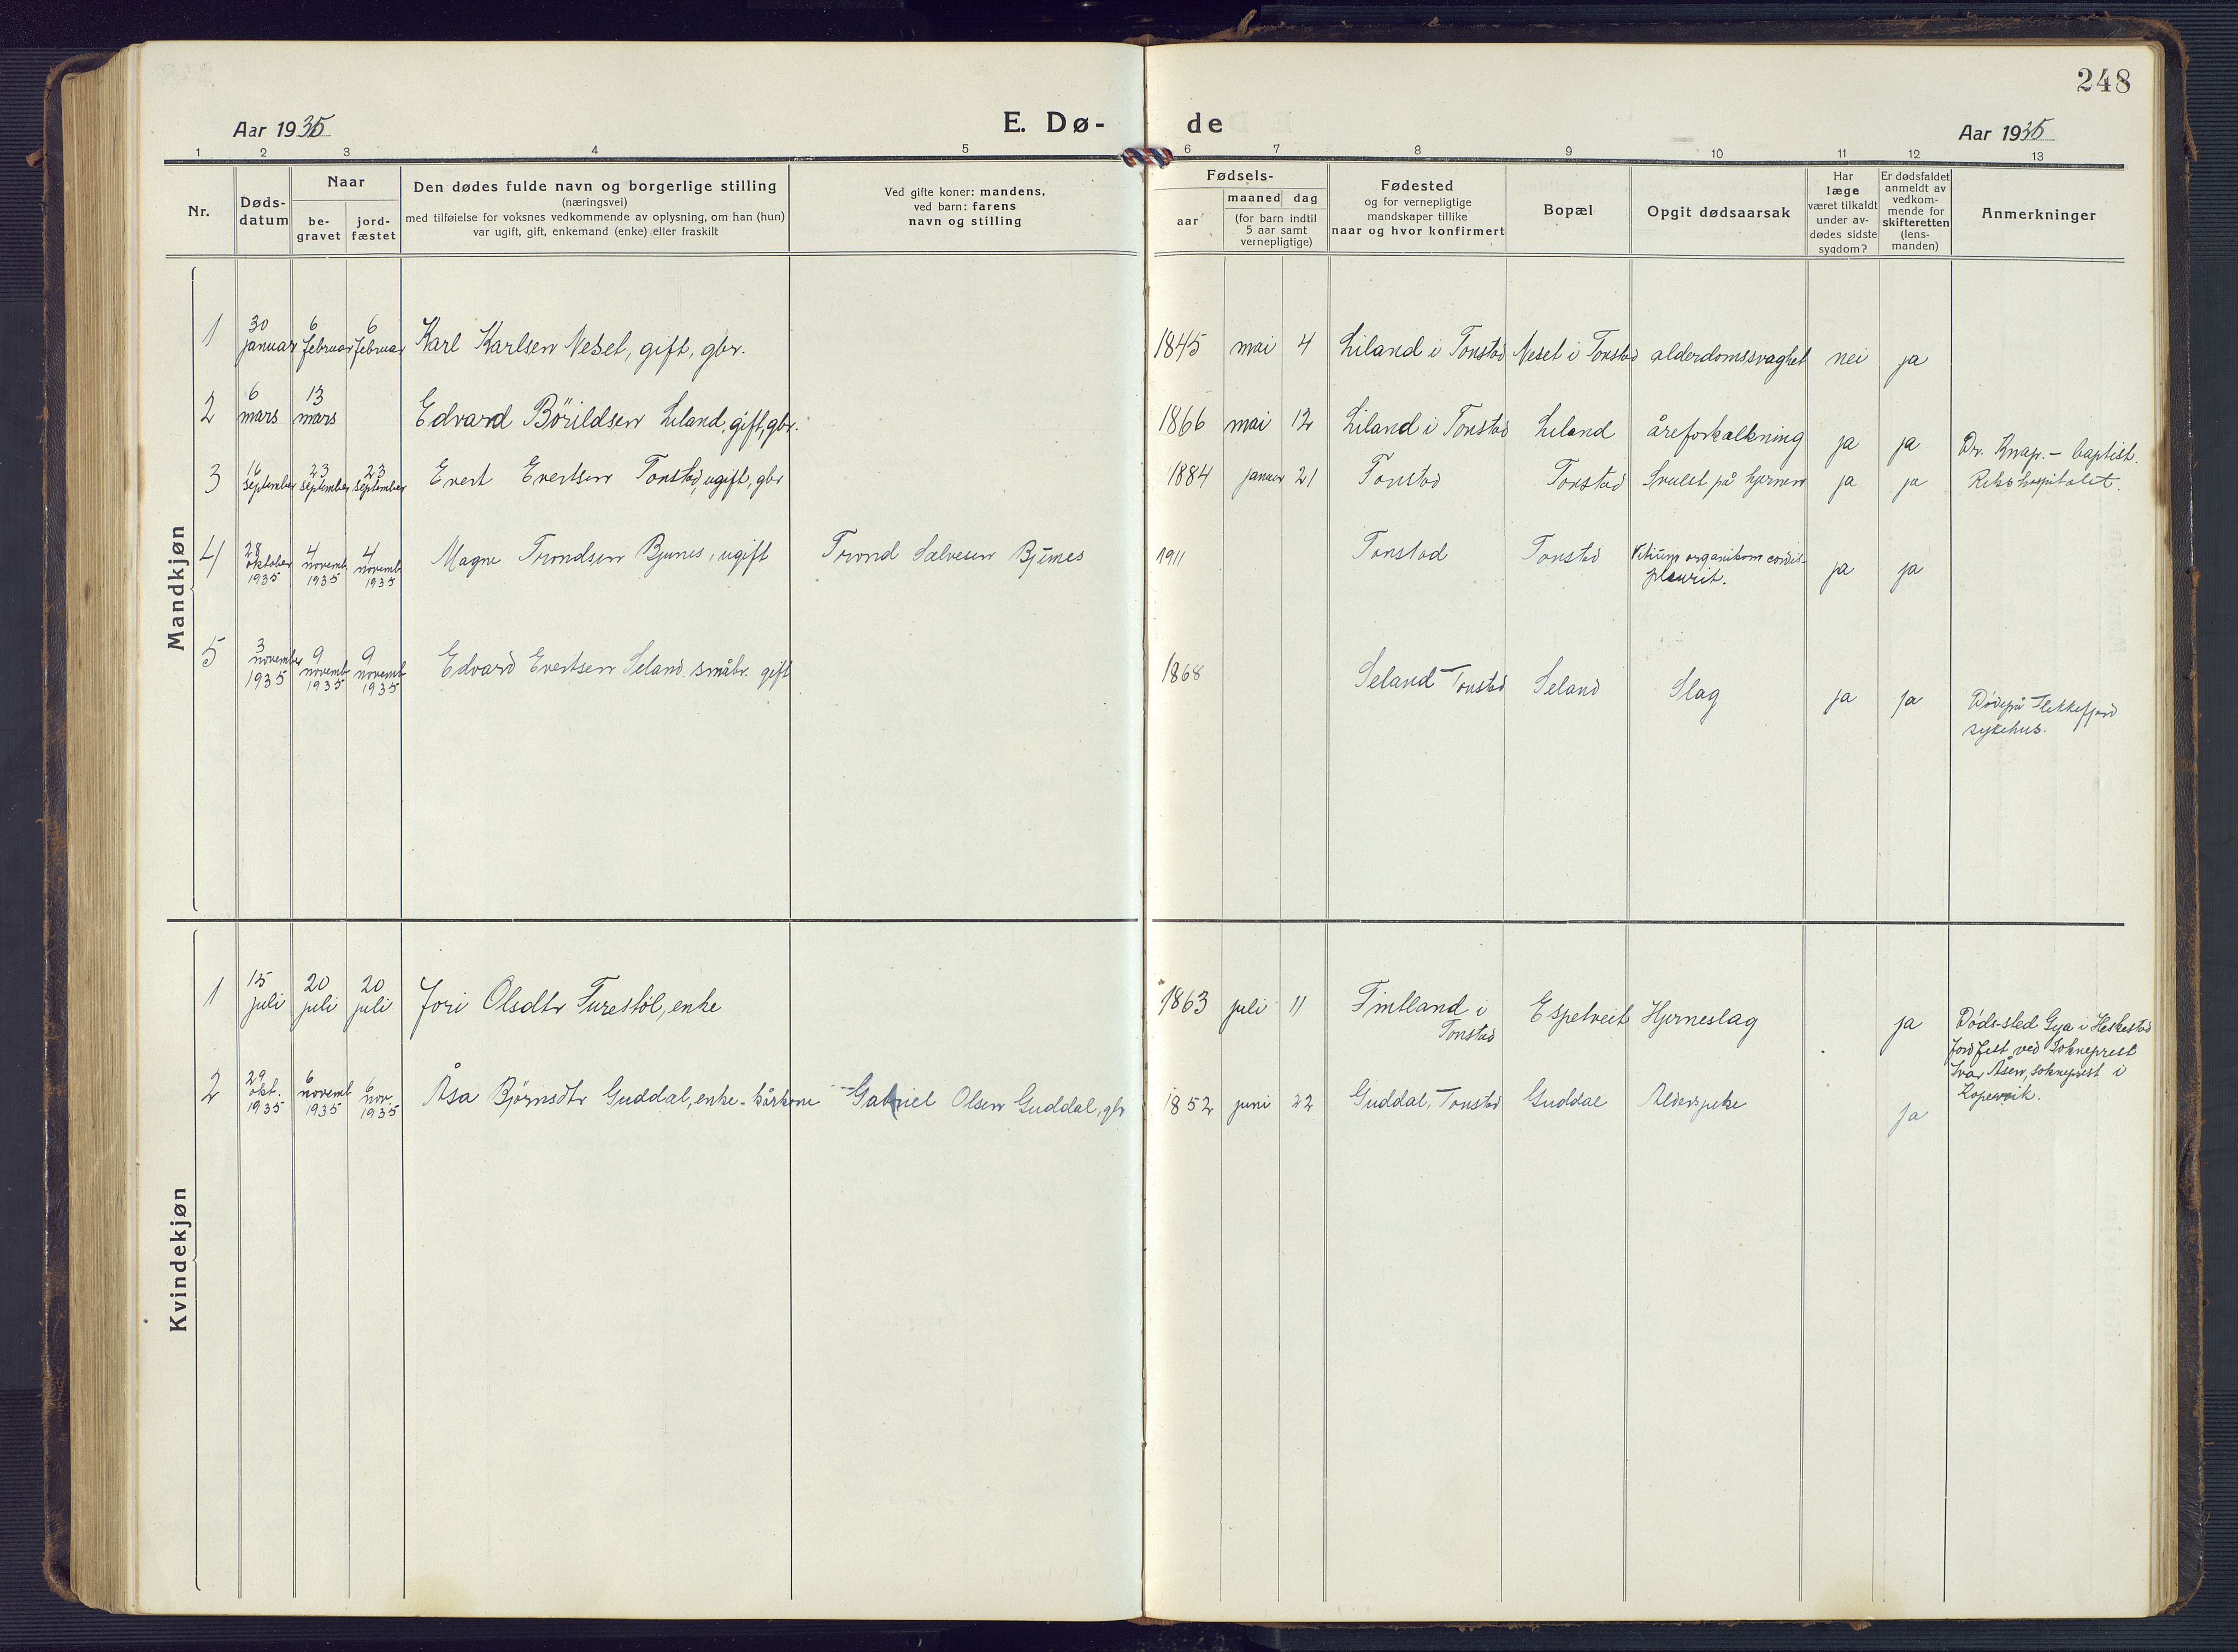 248
Aar 1935
E. Dø-
de
Aar 1935
1 2 3 4 5 6 7 8 9 10 11 12 13
Nr.
Døds-
datum
Naar
be-
gravet
jord-
fæstet
Den dødes fulde navn og borgerlige stilling
(næringsvei)
med tilføielse for voksnes vedkommende av oplysning, om han (hun)
var ugift, gift, enkemand (enke) eller fraskilt
Ved gifte koner: mandens,
ved barn: farens
navn og stilling
Fødsels-
aar
maaned dag
(for barn indtil
5 aar samt
vernepligtige)
Fødested
og for vernepligtige
mandskaper tillike
naar og hvor konfirmert
Bopæl
Opgit dødsaarsak
Har
læge
været tilkaldt
under av-
dødes sidste
sygdom?
Er dødsfaldet
anmeldt av
vedkom-
mende for
skifteretten
(lens-
manden)
Anmerkninger
Mandkjøn
1
30
januar
6
februar
6
februar
Karl Karlsen Neset, gift, gbr.
1845 mai 4
Liland i Tonstad
Neset i Tonstad
alderdomssvaghet
nei
ja
2
6
mars
13
mars
Edvard Börildsen Liland, gift, gbr.
1866 mai 12
Liland i Tonstad
Liland
åreforkalkning
ja
ja
Dr. Knap. - baptist.
3
16
september
23
september
23
september
Evert Evertsen Tonstad, ugift, gbr
1884 januar 21
Tonstad
Tonstad
Svulst på hjernen
ja
ja
Rikshospitalet.
4
28
oktober
1935
4
novemb.
1935
4
novemb.
1935
Magne Trondsen Bjunes, ugift
Trond Salvesen Bjunes
1911
Tonstad
Tonstad
Vitium organikom cordis-
pleurit.
ja
ja
5
3
november
1935
9
novemb
1935
9
novemb
1935
Edvard Evertsen Seland småbr. gift
1868
Seland Tonstad
Seland
Slag
ja
ja
Døde på Flekkefjord
sykehus.
Kvindekjøn
1
15
juli
20
juli
20
juli
Jori Olsdtr Furestöl, enke
1863 juli 11
Fintland i
Tonstad
Espetveit
Hjerneslag
ja
Døds-sted Gya i Heskestad
Jordfest ved Sokneprest
Ivar Åsen, sokneprest i
Kopervik.
2
29
okt.
1935
6
novemb
1935
6
nov.
1935
Åsa Bjørnsdtr Guddal, enke - kårkone
Gabriel Olsen Guddal, gbr
1852 juni 22
Guddal, Tonstad
Guddal
ja